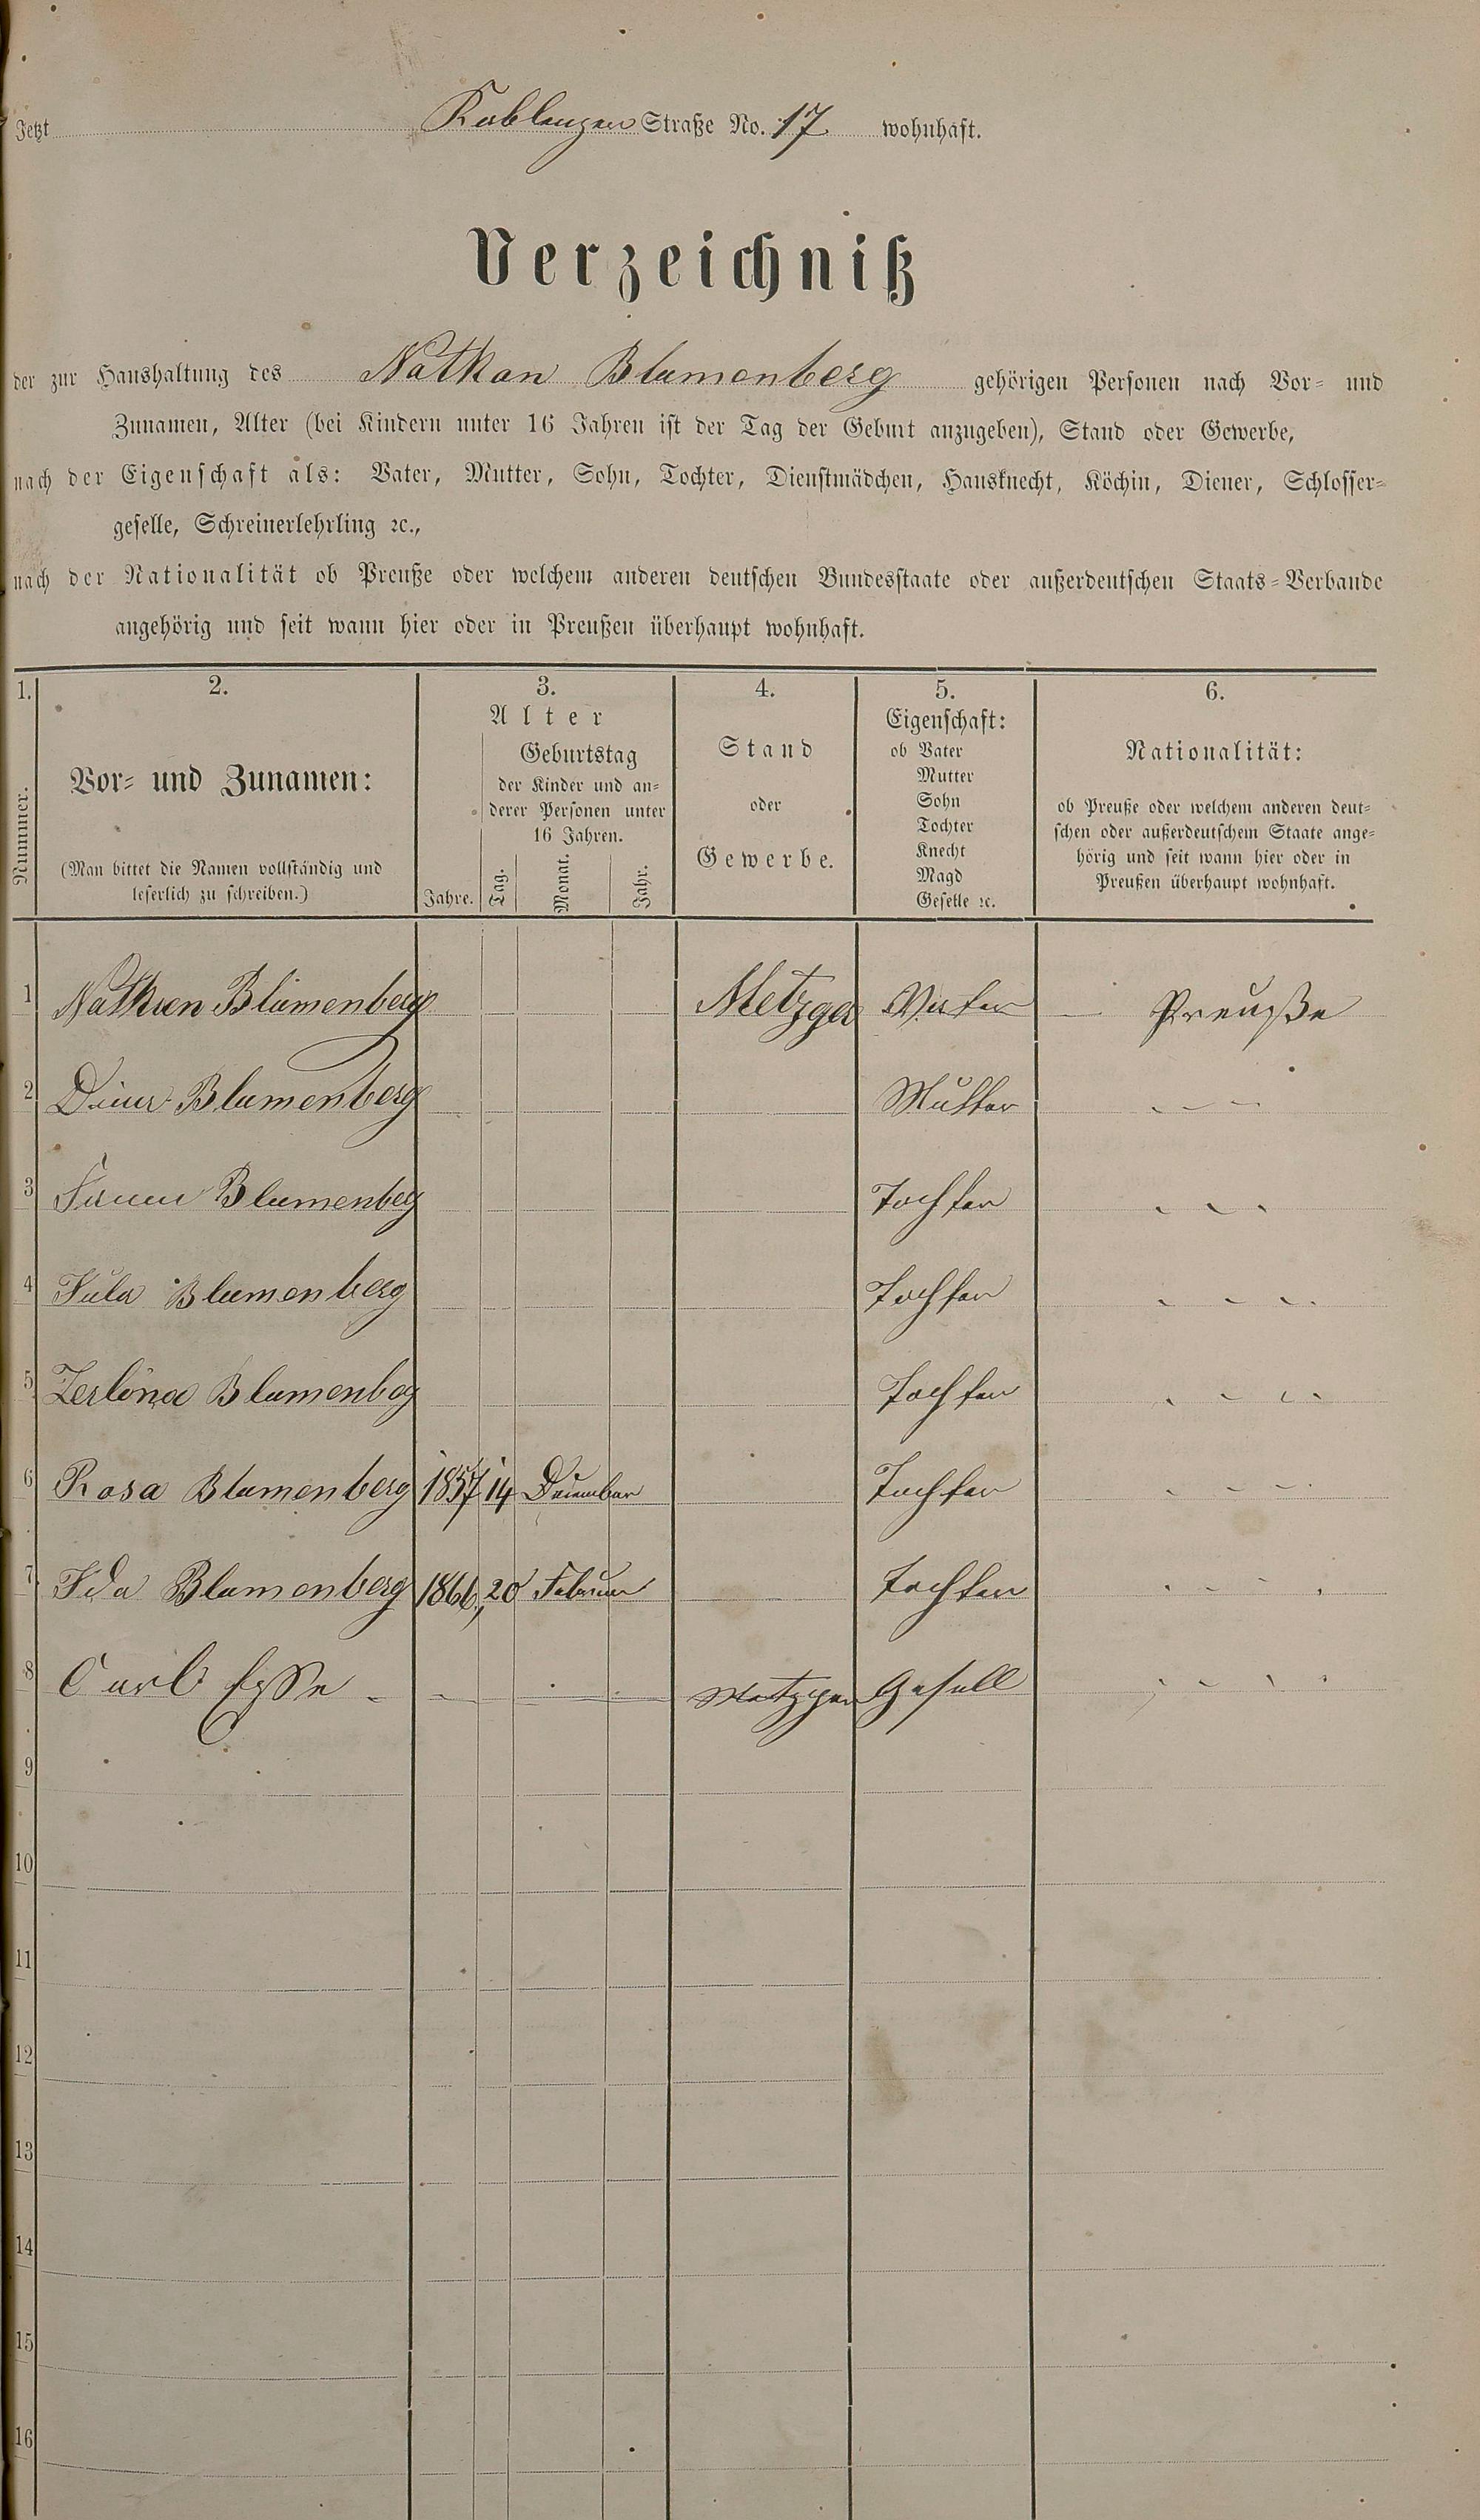 Jetzt Koblenzer Straße No. 17 wohnhaft.
Verzeichniß
der zur Haushaltung des Nathan Blumenberg gehörigen Personen nach Vor- und
Zunamen, Alter (bei Kindern unter 16 Jahren ist der Tag der Geburt anzugeben), Stand oder Gewerbe,
nach der Eigenschaft als: Vater, Mutter, Sohn, Tochter, Dienstmädchen, Hausknecht, Köchin, Diener, Schlosser-
geselle, Schreinerlehrling ꝛc.,
nach der Nationalität ob Preuße oder welchem anderen deutschen Bundesstaate oder außerdeutschen Staats-Verbande
angehörig und seit wann hier oder in Preußen überhaupt wohnhaft.
1. 2. 3. 4. 5. 6.
Nummer.
Vor- und Zunamen:
(Man bittet die Namen vollständig und
leserlich zu schreiben.)
Alter
Jahre.
Geburtstag
der Kinder und an-
derer Personen unter
16 Jahren.
Tag. Monat. Jahr.
Stand
oder
Gewerbe.
Eigenschaft:
ob Vater
Mutter
Sohn
Tochter
Knecht
Magd
Geselle ꝛc.
Nationalität:
ob Preuße oder welchem anderen deut-
schen oder außerdeutschem Staate ange-
hörig und seit wann hier oder in
Preußen überhaupt wohnhaft.
1 Nathan Blumenberg Metzger Vater Preuße
2 Blumenberg Mutter
3 Blumenberg Tochter
4 Jula Blumenberg Tochter
5 Zerlina Blumenberg Tochter
6 Rosa Blumenberg 1857 14 Dezember Tochter
7 Ida Blumenberg 1866 20 Februar Tochter
8 Carl Metzger Gesell
9
10
11
12
13
14
15
16